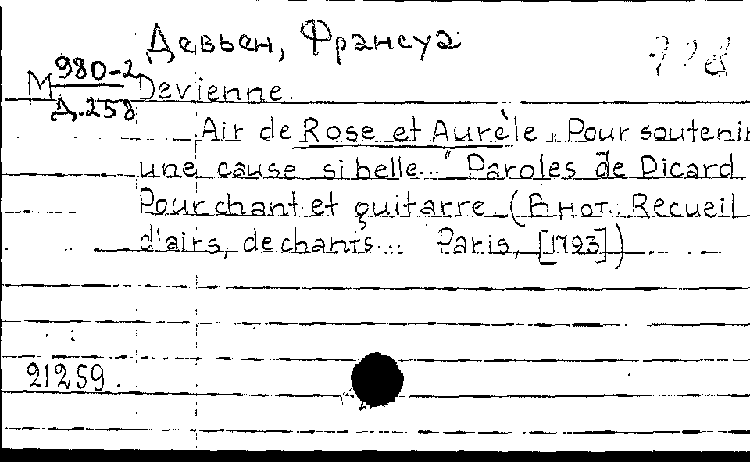 Девьен, Франсуа
М 980-2
Д.258
Devienne
Air de Rose et Aurèle „Pour soutenir
une cause si belle..." Paroles de Picard
Pour chant et guitarre (В нот.: Recueil
d'airs, de chants... Paris, [1793])
21259.